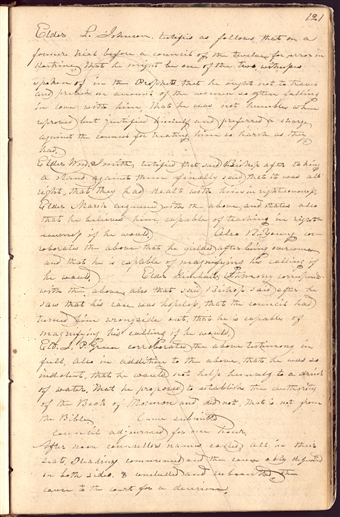 121
Elder L. Johnson, testifies as follows that on a
former trial before a council of the twelve for error in
doctrine, that he might be one of the two witnesses
spoken of in the Prophets, that he ought not to travel
and preach on account of the women so often falling
in love with him, that he was not humble when
reproved but justified himself and preferred a charge
against the council for treating him so harsh as they
had,
Elder Wm. Smith, testified that said Bishop after taking
a stand against them finally said that it was all
right, that they had dealt with him in righteousness,
Elder Marsh argument with the above and states also
that he believes him capable of teaching in right-
eousness if he would, Also B. Young cor-
roborates the above that he yielded after being overcome
and that he is capable of magnifying his calling if
he would, Elder Orson
with the above also that said Bishop said after he
saw that his case was hopeless that the council had
turned him wrongside out, that he is capable of
magnifying his calling if he would,
Eld. J. P. Green corroborates the above testimony in
full, also in addition to the above, that he was so
indolent, that he would not help himself to a drink
of water, that he proposed to establish the authority
of the Book of Mormon and did not, that is not from
the Bible, Cause submitted
Council adjourned for one hour,
After noon councellors names called, all in their
seats, Pleading commenced and then cause ably disputed
on both sides. & concluded and submitted the
cause to the court for a decision,